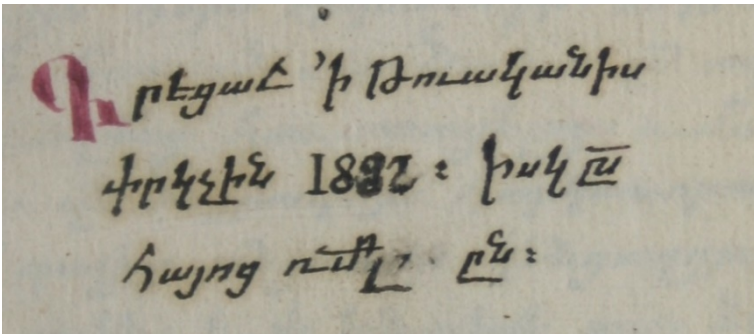 Գրեցաւ 'ի Թուականիս
փրկչին 1882 : իսկ ըստ
հայոց ռմլը ին :